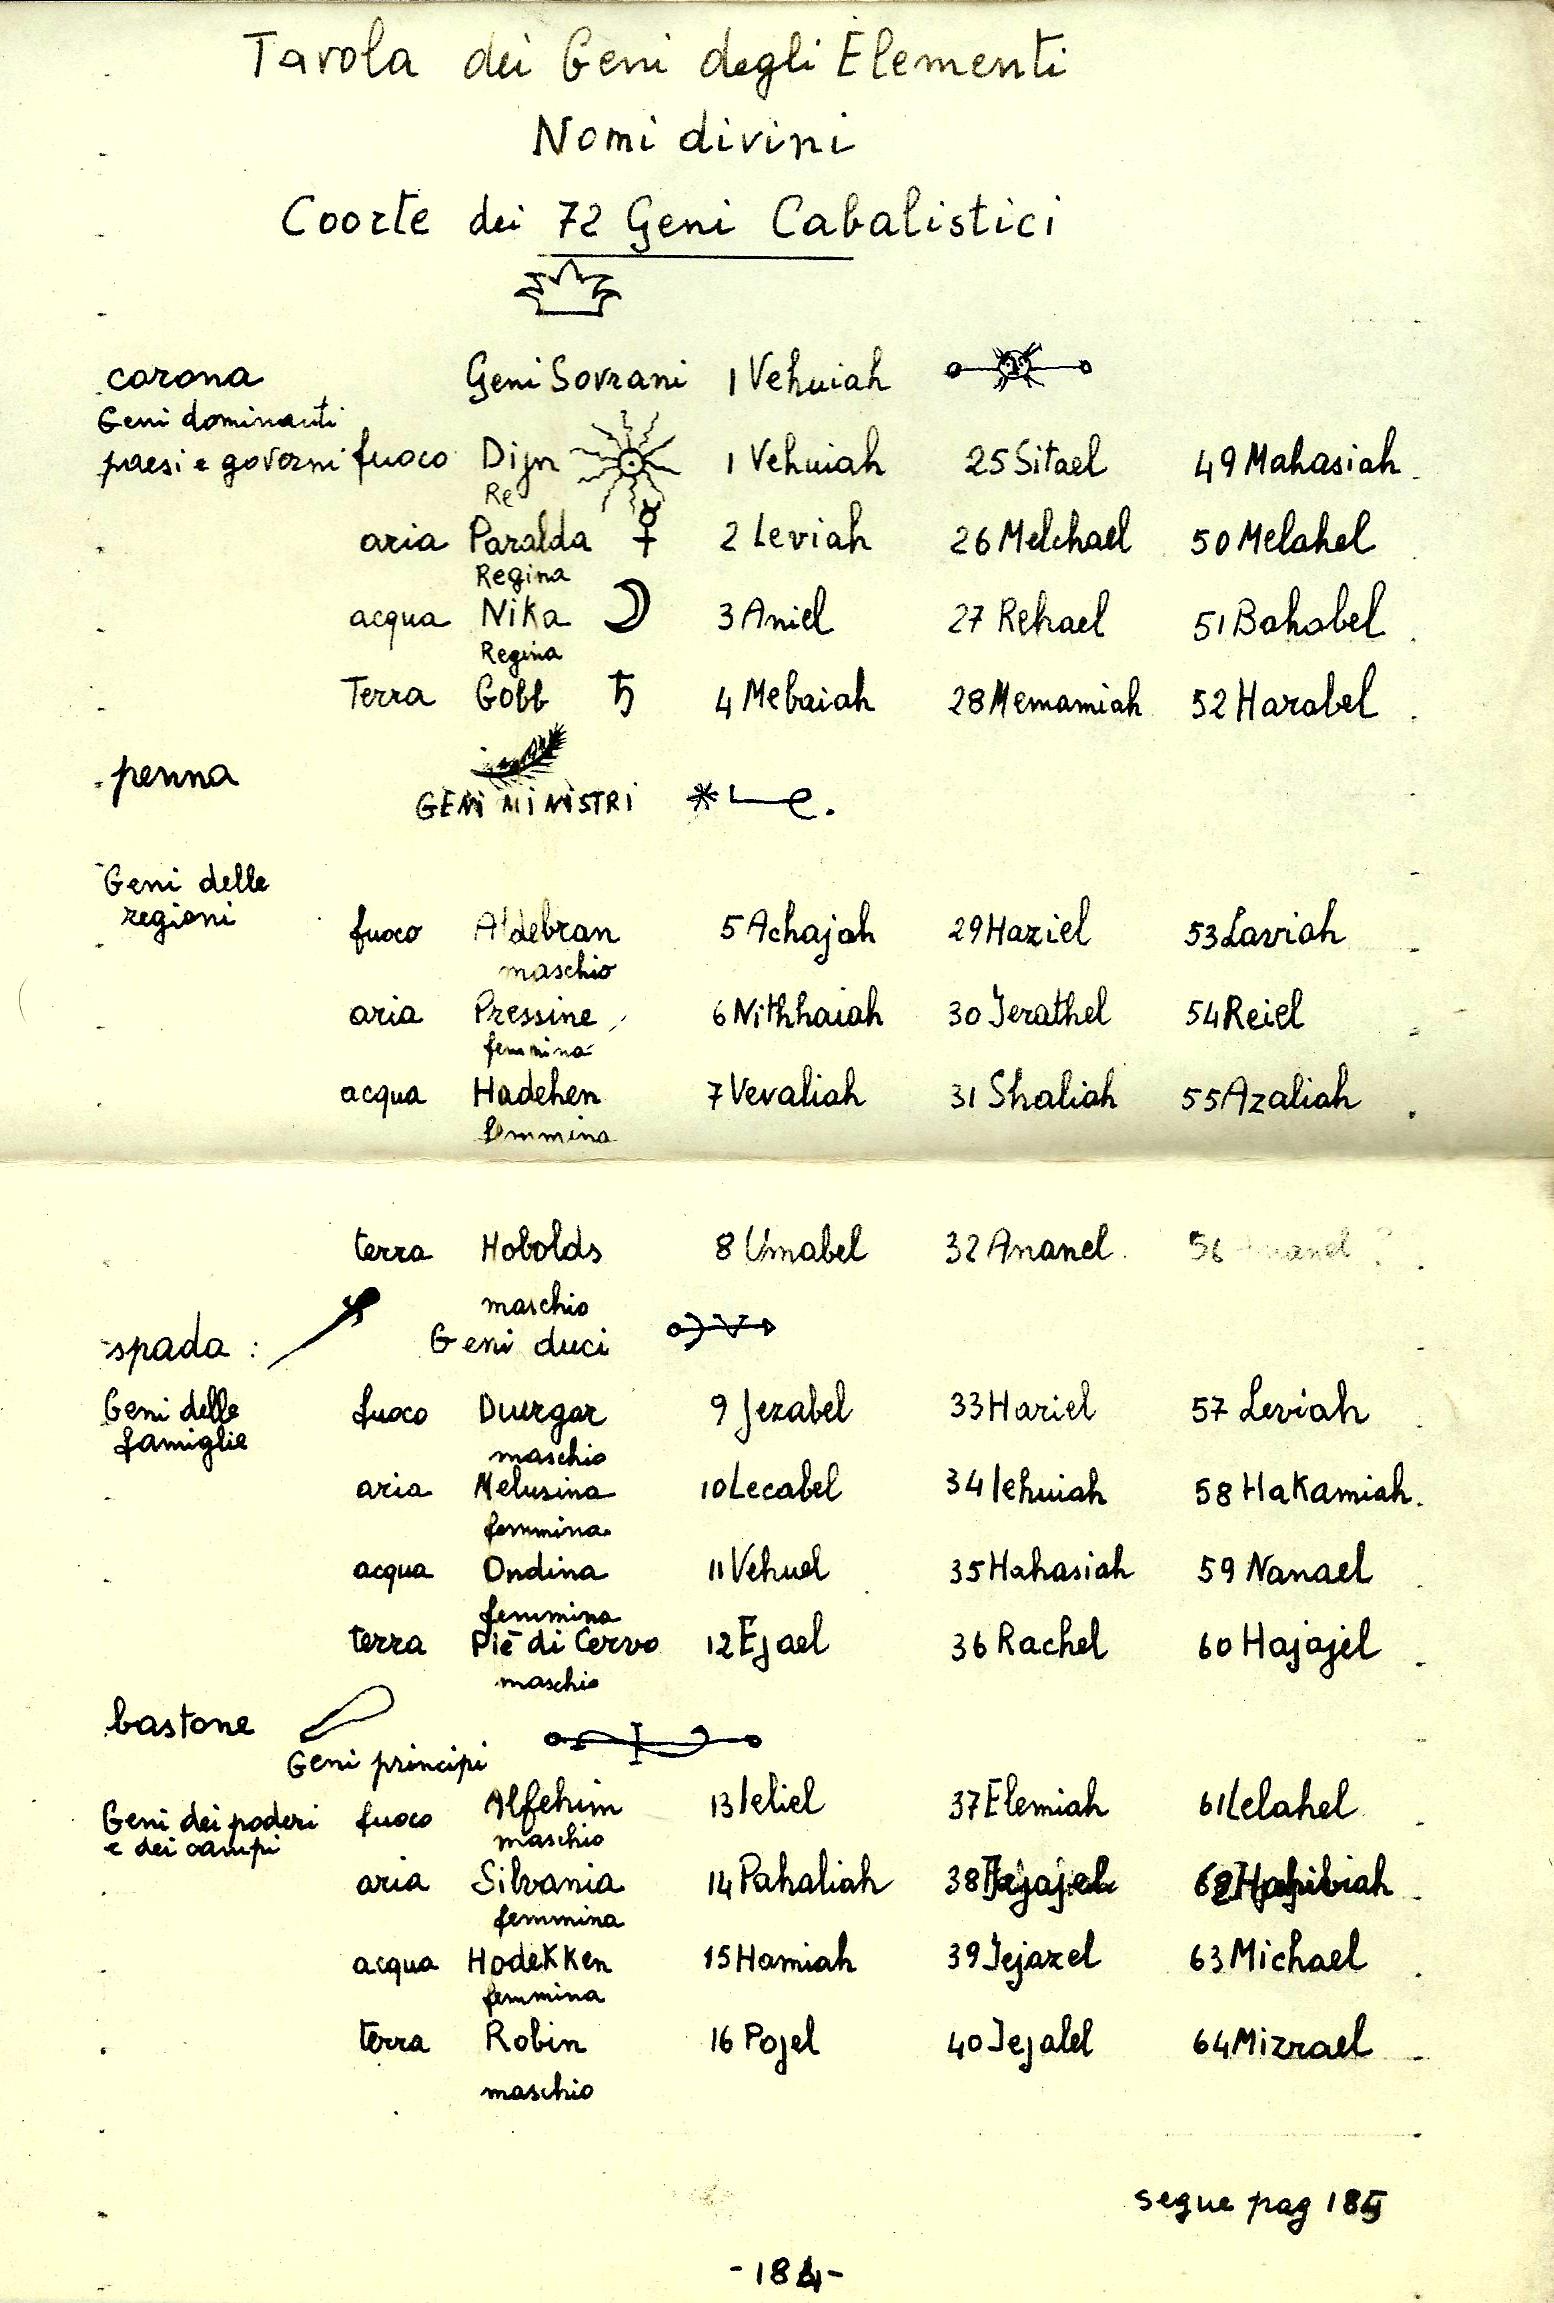 Tavola dei Geni degli Elementi
Nomi divini
Coorte dei 72 Geni Cabalistici
corona Geni Sovrani 1 Vehuiah
Geni dominanti
paesi e governi fuoco Dijn 1 Vehuiah 25 Sitael 49 Mahasiah
Re
aria Paralda ☿ 2 Leviah 26 Melchael 50 Melahel
Regina
acqua Nika ☽ 3 Aniel 27 Rehael 51 Bahabel
Regina
Terra Gobb ♄ 4 Mebaiah 28 Memamiah 52 Harabel
penna
GENI MINISTRI
Geni delle
regioni
fuoco Aldebran 5 Achajah 29 Haziel 53 Laviah
maschio
aria Pressine 6 Nithhaiah 30 Jerathel 54 Reiel
femmina
acqua Hadehen 7 Vevaliah 31 Shaliah 55 Azaliah
femmina
terra Hobolds 8 Umabel 32 Ananel 56
maschio
spada : Geni duci
Geni delle
famiglie
fuoco Duergar 9 Jezabel 33 Hariel 57 Leviah
maschio
aria Melusina 10 Lecabel 34 Iehuiah 58 Hakamiah.
femmina
acqua Ondina 11 Vehuel 35 Hahasiah 59 Nanael
femmina
terra Piè di Cervo 12 Ejael 36 Rachel 60 Hajajel
maschio
bastone
Geni principi
Geni dei poderi
e dei campi
fuoco Alfehim 13 Ieliel 37 Elemiah 61 Lelahel
maschio
aria Silvania 14 Pahaliah 38 62
femmina
acqua Hodekken 15 Hamiah 39 Jejazel 63 Michael
femmina
terra Robin 16 Pojel 40 Jejalel 64 Mizrael
maschio
segue pag 185
-184-